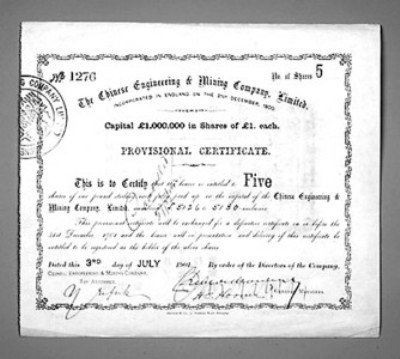 No 1276 No. of Shares 5
The Chinese Engineering & Mining Company, Limited.
INCORPORATED IN ENGLAND ON THE 21st DECEMBER, 1900.
Capital £1,000,000 in Shares of £1. each.
PROVISIONAL CERTIFICATE.
This is to Certify that the bearer is entitled to Five
shares of one pound sterling each fully paid up in the capital of the Chinese Engineering &
Mining Company, Limited, numbered 5126 to 5130
This provisional certificate will be exchanged for a definitive certificate on or before the
31st December, 1901 and the bearer will on presentation and delivery of this certificate be
entitled to be registered as the holder of the above shares
Dated this 3RD day of JULY 1901. By order of the Directors of the Company.
CHINESE ENGINEERING & MINING COMPANY.